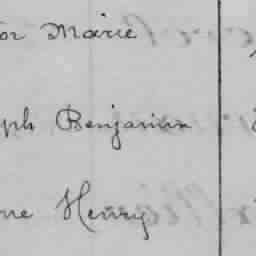 or Marie
ph Benjamin
ne Henry